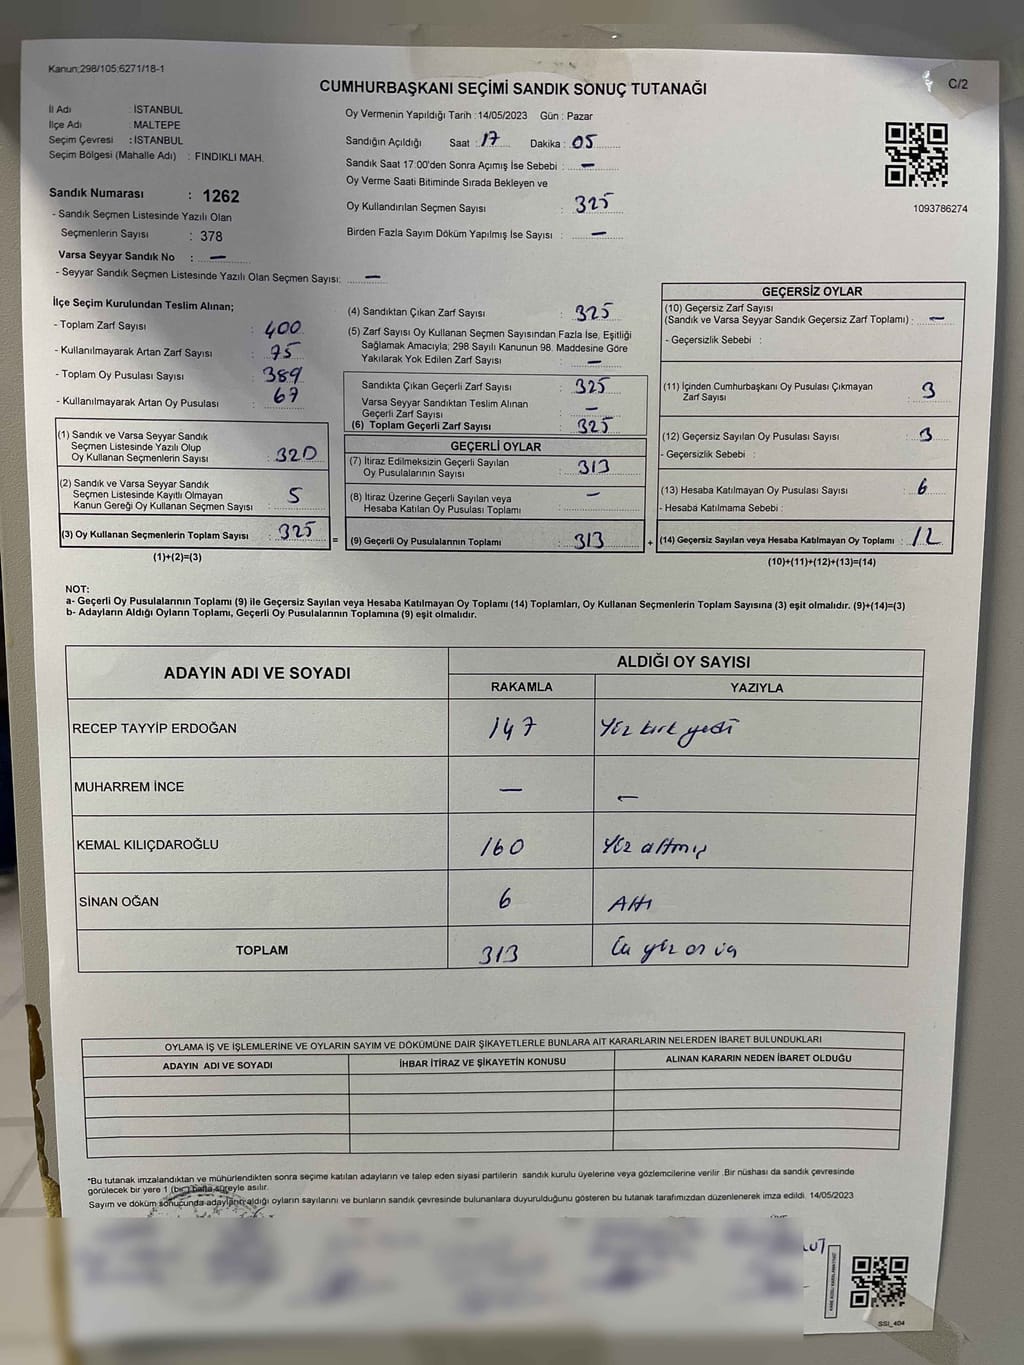 Kanun;298/105;6271/18-1
C/2
CUMHURBAŞKANI SEÇİMİ SANDIK SONUÇ TUTANAĞI
İl Adı : İSTANBUL
İlçe Adı : MALTEPE
Seçim Çevresi : İSTANBUL
Seçim Bölgesi (Mahalle Adı) : FINDIKLI MAH.
Oy Vermenin Yapıldığı Tarih :14/05/2023 Gün : Pazar
Sandığın Açıldığı Saat : 17 Dakika : 05
Sandık Saat 17:00'den Sonra Açımış İse Sebebi : —
Oy Verme Saati Bitiminde Sırada Bekleyen ve
Oy Kullandırılan Seçmen Sayısı : 325
Birden Fazla Sayım Döküm Yapılmış İse Sayısı : —
1093786274
Sandık Numarası : 1262
- Sandık Seçmen Listesinde Yazılı Olan
Seçmenlerin Sayısı : 378
Varsa Seyyar Sandık No : —
- Seyyar Sandık Seçmen Listesinde Yazılı Olan Seçmen Sayısı: —
İlçe Seçim Kurulundan Teslim Alınan;
- Toplam Zarf Sayısı : 400
- Kullanılmayarak Artan Zarf Sayısı : 75
- Toplam Oy Pusulası Sayısı : 389
- Kullanılmayarak Artan Oy Pusulası : 67
(1) Sandık ve Varsa Seyyar Sandık
Seçmen Listesinde Yazılı Olup
Oy Kullanan Seçmenlerin Sayısı : 320
(2) Sandık ve Varsa Seyyar Sandık
Seçmen Listesinde Kayıtlı Olmayan
Kanun Gereği Oy Kullanan Seçmen Sayısı : 5
(3) Oy Kullanan Seçmenlerin Toplam Sayısı : 325
(1)+(2)=(3)
=
(4) Sandıktan Çıkan Zarf Sayısı : 325
(5) Zarf Sayısı Oy Kullanan Seçmen Sayısından Fazla İse, Eşitliği
Sağlamak Amacıyla; 298 Sayılı Kanunun 98. Maddesine Göre
Yakılarak Yok Edilen Zarf Sayısı : —
Sandıkta Çıkan Geçerli Zarf Sayısı : 325
Varsa Seyyar Sandıktan Teslim Alınan
Geçerli Zarf Sayısı : —
(6) Toplam Geçerli Zarf Sayısı : 325
GEÇERLİ OYLAR
(7) İtiraz Edilmeksizin Geçerli Sayılan
Oy Pusulalarının Sayısı : 313
(8) İtiraz Üzerine Geçerli Sayılan veya
Hesaba Katılan Oy Pusulası Toplamı : —
(9) Geçerli Oy Pusulalarının Toplamı : 313
+
GEÇERSİZ OYLAR
(10) Geçersiz Zarf Sayısı
(Sandık ve Varsa Seyyar Sandık Geçersiz Zarf Toplamı) : —
- Geçersizlik Sebebi :
(11) İçinden Cumhurbaşkanı Oy Pusulası Çıkmayan
Zarf Sayısı : 3
(12) Geçersiz Sayılan Oy Pusulası Sayısı : 3
- Geçersizlik Sebebi :
(13) Hesaba Katılmayan Oy Pusulası Sayısı : 6
- Hesaba Katılmama Sebebi :
(14) Geçersiz Sayılan veya Hesaba Katılmayan Oy Toplamı : 12
(10)+(11)+(12)+(13)=(14)
NOT:
a- Geçerli Oy Pusulalarının Toplamı (9) ile Geçersiz Sayılan veya Hesaba Katılmayan Oy Toplamı (14) Toplamları, Oy Kullanan Seçmenlerin Toplam Sayısına (3) eşit olmalıdır. (9)+(14)=(3)
b- Adayların Aldığı Oyların Toplamı, Geçerli Oy Pusulalarının Toplamına (9) eşit olmalıdır.
ADAYIN ADI VE SOYADI
ALDIĞI OY SAYISI
RAKAMLA YAZIYLA
RECEP TAYYİP ERDOĞAN 147 Yüz kırk yedi
MUHARREM İNCE — —
KEMAL KILIÇDAROĞLU 160 Yüz altmış
SİNAN OĞAN 6 Altı
TOPLAM 313 Üç yüz on üç
OYLAMA İŞ VE İŞLEMLERİNE VE OYLARIN SAYIM VE DÖKÜMÜNE DAİR ŞİKAYETLERLE BUNLARA AİT KARARLARIN NELERDEN İBARET BULUNDUKLARI
ADAYIN ADI VE SOYADI İHBAR İTİRAZ VE ŞİKAYETİN KONUSU ALINAN KARARIN NEDEN İBARET OLDUĞU
*Bu tutanak imzalandıktan ve mühürlendikten sonra seçime katılan adayların ve talep eden siyasi partilerin sandık kurulu üyelerine veya gözlemcilerine verilir .Bir nüshası da sandık çevresinde
görülecek bir yere 1 (bir) hafta süreyle asılır.
Sayım ve döküm sonucunda adayların aldığı oyların sayılarını ve bunların sandık çevresinde bulunanlara duyurulduğunu gösteren bu tutanak tarafımızdan düzenlenerek imza edildi. 14/05/2023
SSI_404